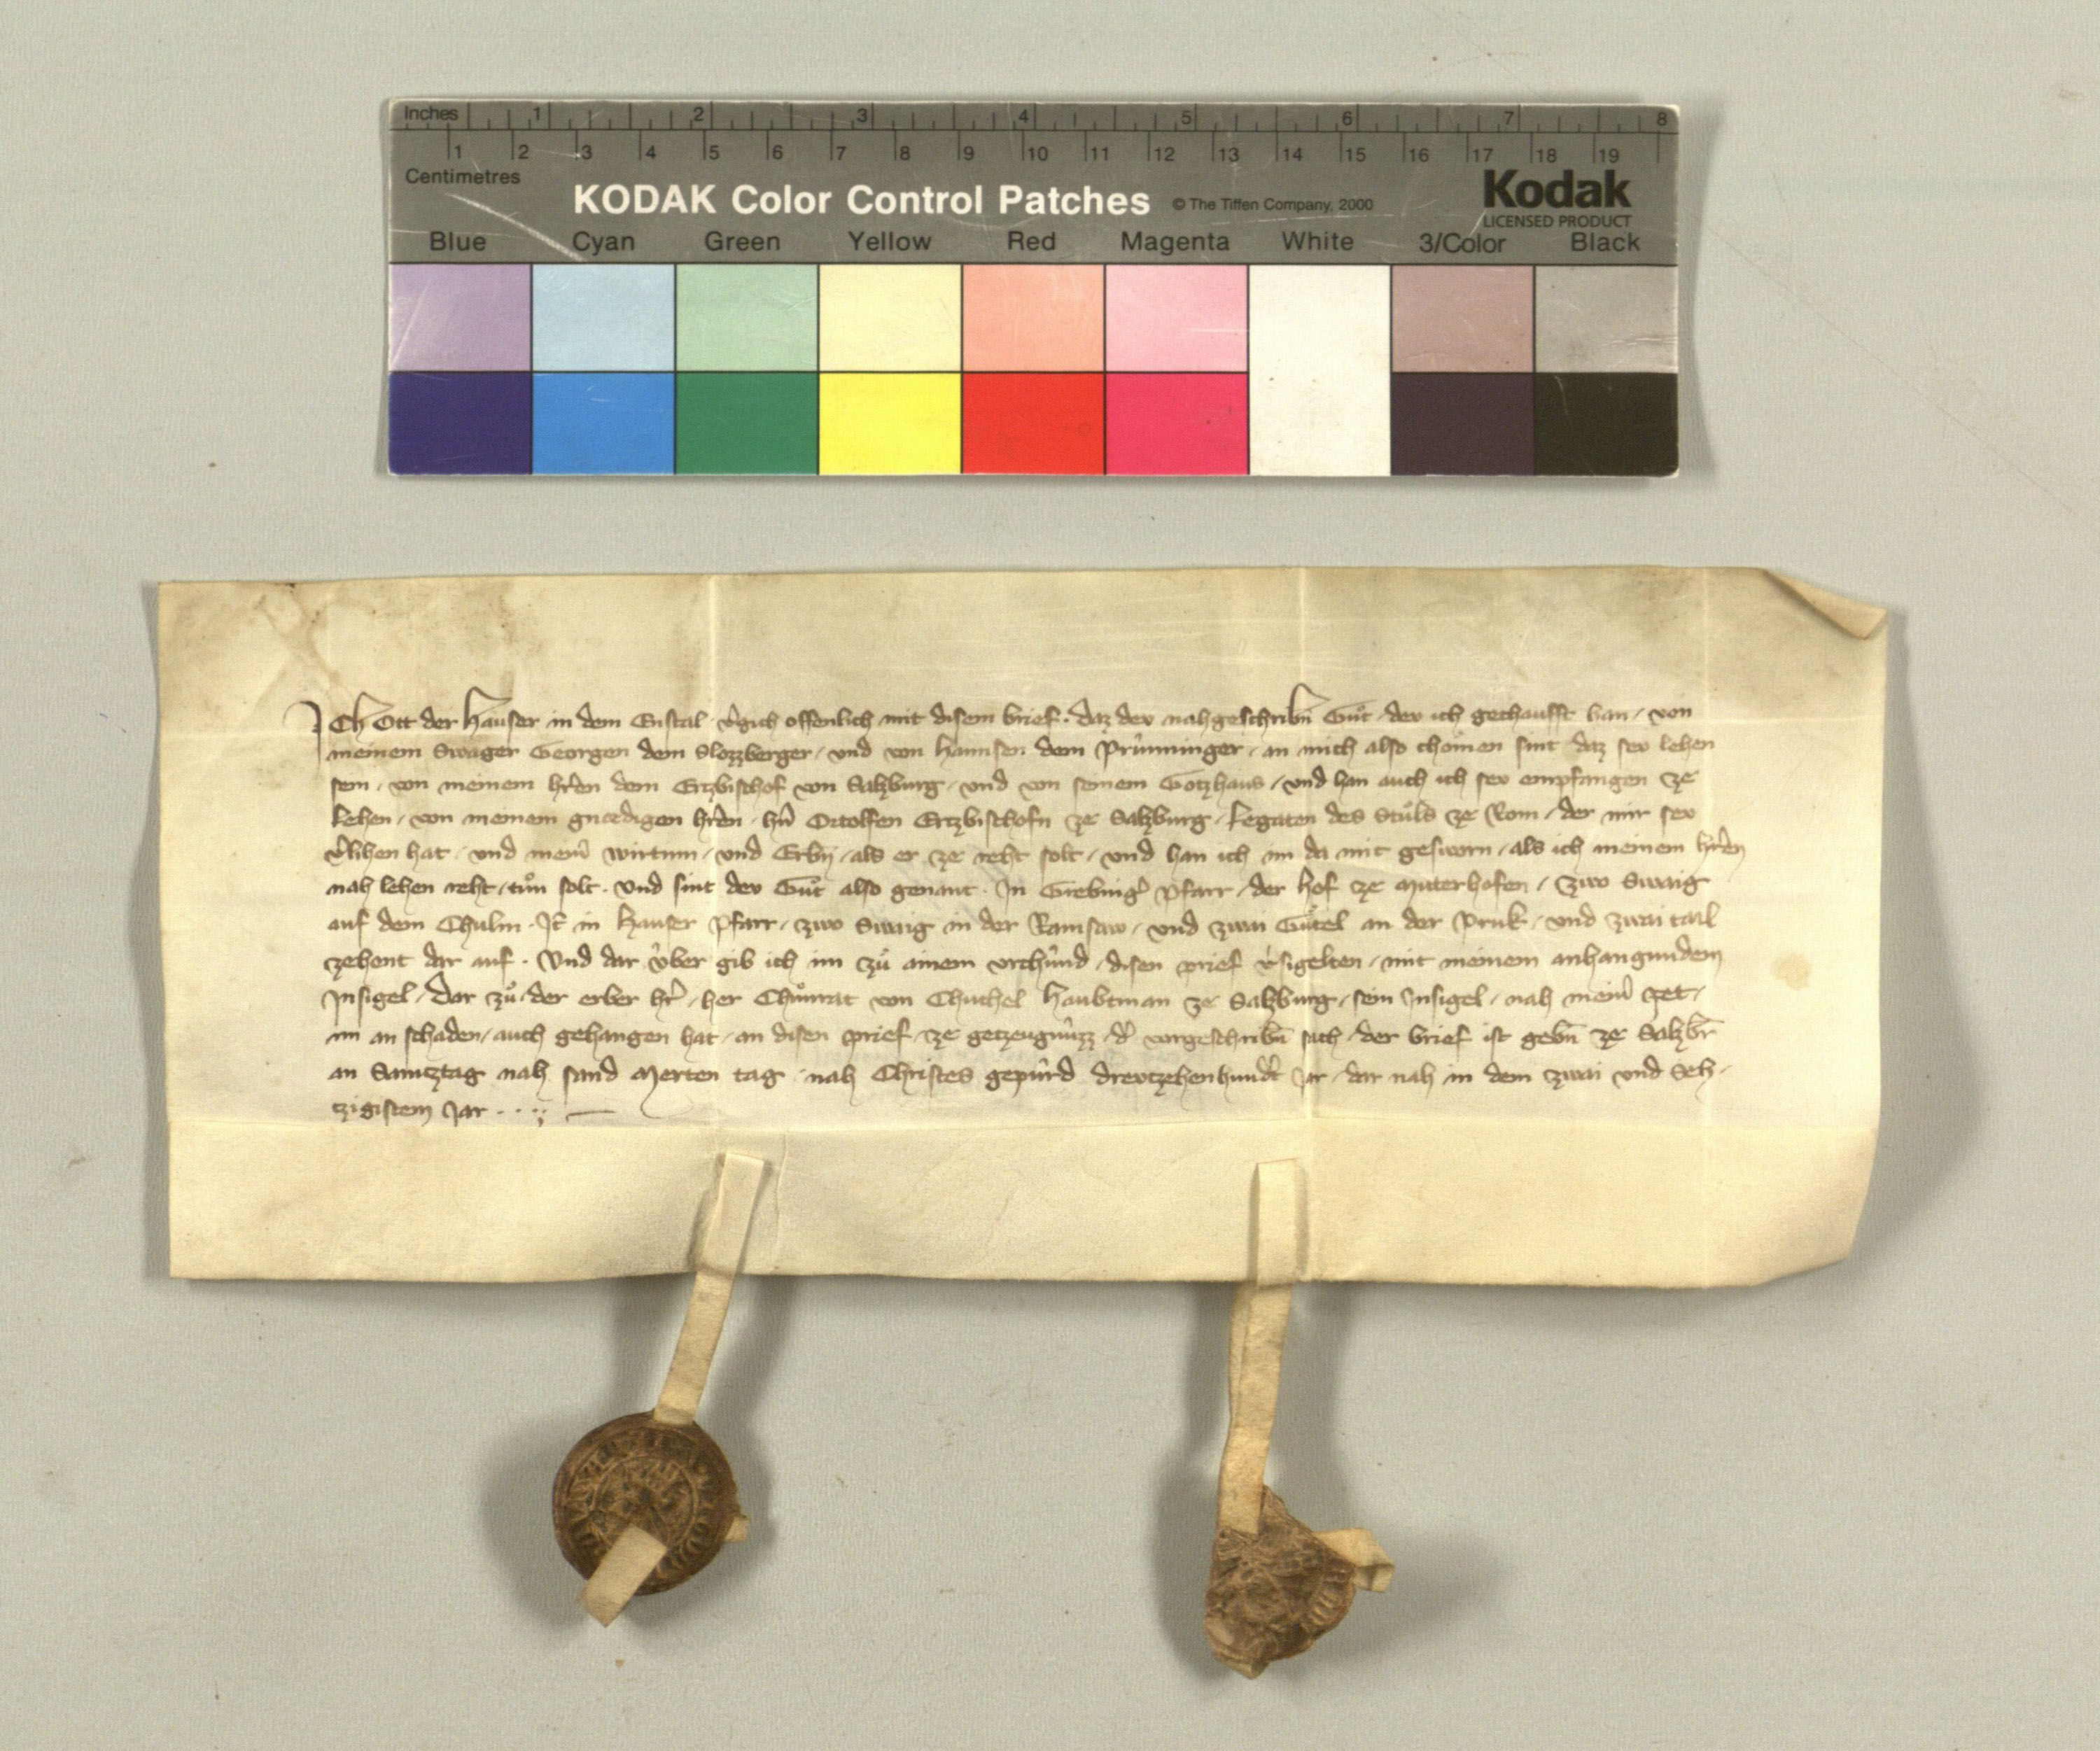 Inches 1 2 3 4 5 6 7 8
1 2 3 4 5 6 7 8 9 10 11 12 13 14 15 16 17 18 19
Centimetres
KODAK Color Control Patches © The Tiffen Company, 2000 Kodak
LICENSED PRODUCT
Blue Cyan Green Yellow Red Magenta White 3/Color Black
ICh Ott der Hauser in dem Enstal v̾gich offenlich mit disem brief. daz dev nahgeschribn̄ Guͦt, dev ich gechaufft han, von
meinem Swager Georgen dem Slozzberger, vnd von Hannsen dem Pruͤnninger, an mich also chomen sint, daz sev lehen
sein, von meinem hr̄en dem Ertzbischof von Saltzburg, vnd von seinem Gotzhaus, vnd han auch ich sev empfangen ze
Lehen, von meinem gnaedigen hr̄en, hn̄ Ortolffen Ertzbischofn ze Saltzburg, Legaten des Stuͤls ze Rom, der mir sev
v̾lihen hat, vnd mein̄ wirtinn, vnd Erbn̄, als er ze reht solt, vnd han ich im da mit gesworn, als ich meinem hr̄en
nah lehen reht, tuͦn solt. Vnd sint dev Guͦt also genant. In Grebing̾ Pfarr, der hof ze Muterhofen, Zwo Swaig
auf dem Chulm. It̄ in Hauser Pfarr, zwo Swaig in der Ramsaw, vnd zwai Guͤtel an der Pruk, vnd zwai tail
zehent dar auf. Vnd dar vͤber gib ich im zuͦ ainem vrchuͤnd, disen prief v̾sigelten, mit meinem anhangundem
Insigel, Dar zuͦ, der erber hr̄, her Chuͦnrat von Chuchel Haubtman ze Saltzburg, sein Insigel, nah mein̄ pet,
im an schaden, auch gehangen hat, an disen prief, ze getzeugnuͤzz, d̾ vorgeschribn̄ sach, der brief ist gebn̄ ze Saltzbr̄
an Samztag nah sand Merten tag, nah Christes gepuͤrd drevtzehenhund̾t Jar, dar nah in dem zwai vnd Seh-
tzigistem Jar